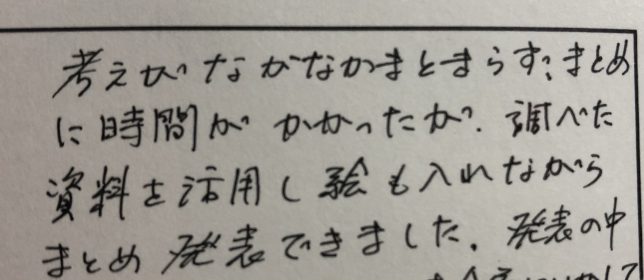 考えがなかなかまとまらず、まとめ
に時間がかかったが、調べた
資料を活用し絵も入れながら
まとめ発表できました。発表の中